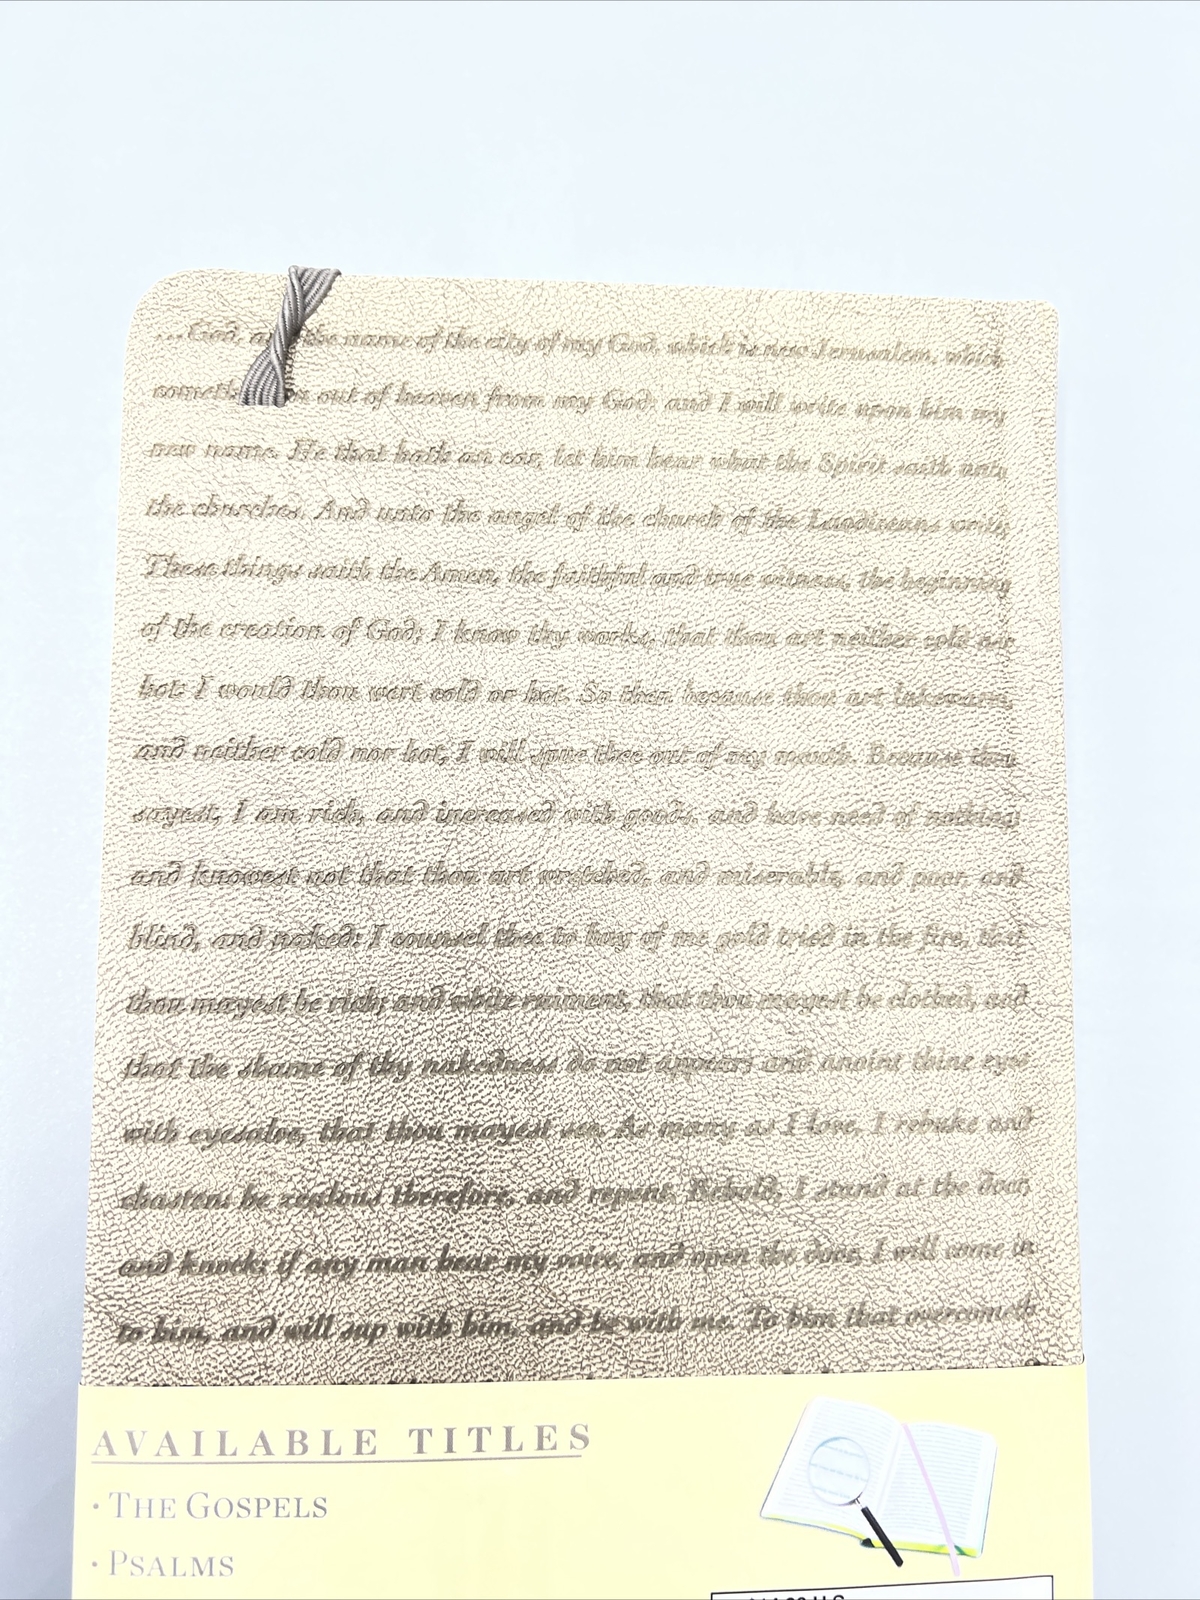 ...God, a the name of the city of my God, which is new Jerusalem, which
cometh out of heaven from my God: and I will write upon him my
new name. He that hath an ear, let him hear what the Spirit saith unto
the churches. And unto the angel of the church of the Laodiceans write;
These things saith the Amen, the faithful and true witness, the beginning
of the creation of God; I know thy works, that thou art neither cold nor
hot: I would thou wert cold or hot. So then because thou art lukewarm,
and neither cold nor hot, I will spue thee out of my mouth. Because thou
sayest, I am rich, and increased with goods, and have need of nothing;
and knowest not that thou art wretched, and miserable, and poor, and
blind, and naked: I counsel thee to buy of me gold tried in the fire, that
thou mayest be rich; and white raiment, that thou mayest be clothed, and
that the shame of thy nakedness do not appear; and anoint thine eyes
with eyesalve, that thou mayest see. As many as I love, I rebuke and
chasten: be zealous therefore, and repent. Behold, I stand at the door,
and knock: if any man hear my voice, and open the door, I will come in
to him, and will sup with him, and he with me. To him that overcometh
AVAILABLE TITLES
· THE GOSPELS
· PSALMS